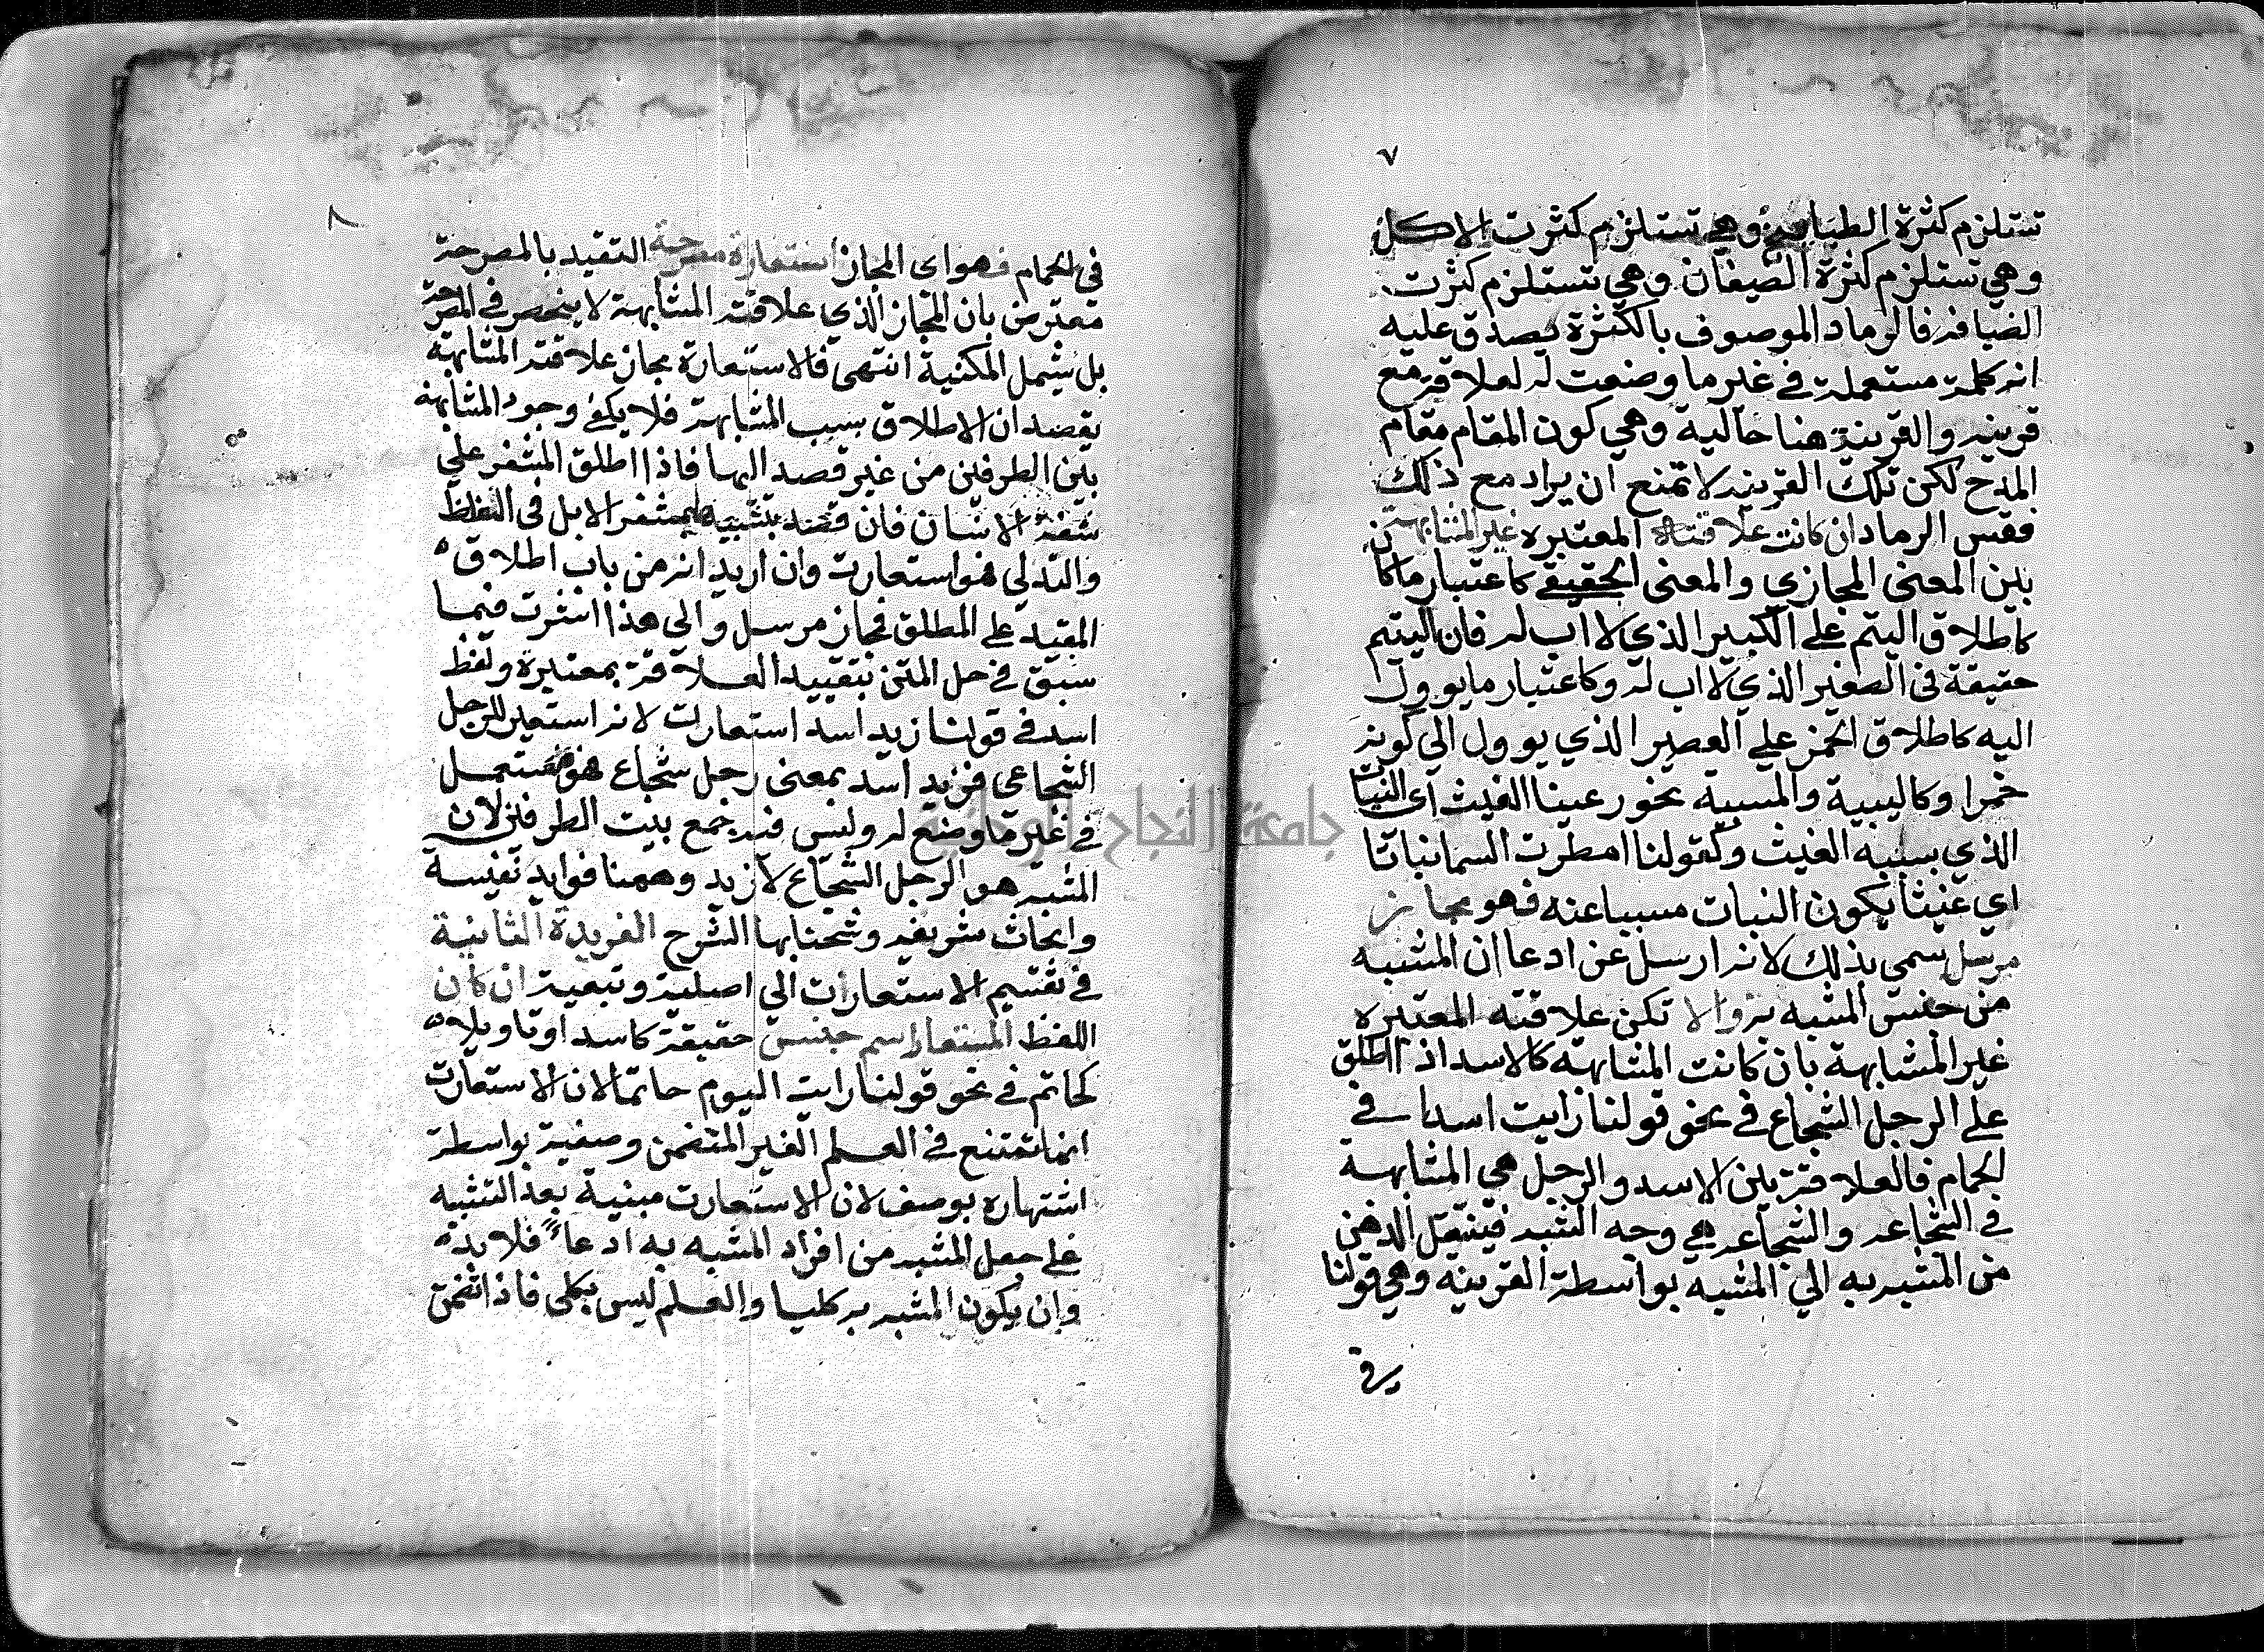 ٧
تستلزم كثرة الطبايخ وهي تستلزم كثرت الاكل
وهي تستلزم كثرة الضيفان وهي تستلزم كثرت
الضيافه فالرماد الموصوف بالكثرة يصدق عليه
انه كلمة مستعملة في غير ما وضعت له لعلاقة مع
قرينه والقرينة هنا حالية وهي كون المقام مقام
المدح لكن تلك القرينه لا تمنع ان يراد مع ذلك
نفس الرماد ان كانت علاقته المعتبره غير المشابهة
بين المعنى المجازي والمعنى الحقيقي كاعتبار ما كا
كاطلاق اليتم على الكبير الذي لا اب له فان اليتم
حقيقة في الصغير الذي لا اب له وكاعتبار ما يوول
اليه كاطلاق الخمر على العصير الذي يوول الى كونه
خمرا وكالسبية والمسبية نحو رعينا الغيث اى النبات
الذي بسببه الغيث وكقولنا امطرت السما نباتا
اي غيثا يكون النبات مسبباعنه فهو مجاز
مرسل سمي بذلك لانه ارسل عن ادعا ان المشبه
من جنس المشبه به والا تكن علاقته المعتبره
غير المشابهة بان كانت المشابهة كالاسد اذ اطلق
على الرجل الشجاع في نحو قولنا رايت اسدا في
الحمام فالعلاقة بين الاسد والرجل هي المشابهة
في الشجاعه والشجاعه هي وجه الشبه فينتقل الذهن
من المشبه به الي المشبه بواسطة القرينه وهي قولنا
في
٨
في الحمام فهو اى المجاز استعارة مصرحة التقيد بالمصرحة
معترض بان المجاز الذي علاقته المشابهة لا ينحصر في المصرحة
بل يشمل المكنية انتهى فالاستعارة مجاز علاقته المشابهة
بقصد ان الاطلاق بسبب المشابهة فلا يكفي وجود المشابهة
بين الطرفين من غير قصد اليها فاذا اطلق المشفر على
شفة الانسان فان قصد تشبيهها بمشفر الابل في الغلظ
والتدلي فهو استعارت وان اريد انه من باب اطلاق
المقيد على المطلق فمجاز مرسل والى هذا اشرت فيما
سبق في حل المتن بتقييد العلاقة بمعتبرة ولفظ
اسد في قولنا زيد اسد استعارت لانه استعير للرجل
الشجاع فزيد اسد بمعنى رجل شجاع فهو مستعمل
في غير ما وضع له وليس فيه جمع بين الطرفين لان
المشبه هو الرجل الشجاع لا زيد وههنا فوايد نفيسة
وابحاث شريفه وشحنا بها الشرح الفريدة الثانية
في تقسيم الاستعارات الي اصلية وتبعية ان كان
اللفظ المستعار اسم جنس حقيقة كاسد او تاويلا
كحاتم في نحو قولنا رايت اليوم حاتما لان الاستعارت
انما تمتنع في العلم الغير المتضمن وصفية بواسطة
اشتهاره بوصف لان الاستعارت مبنية بعد التشبه
على جعل المشبه من افراد المشبه به ادعاً فلا بد
وان يكون المشبه به كليا والعلم ليس بكلى فاذا تضمن
جامعة النجاح الوطنية